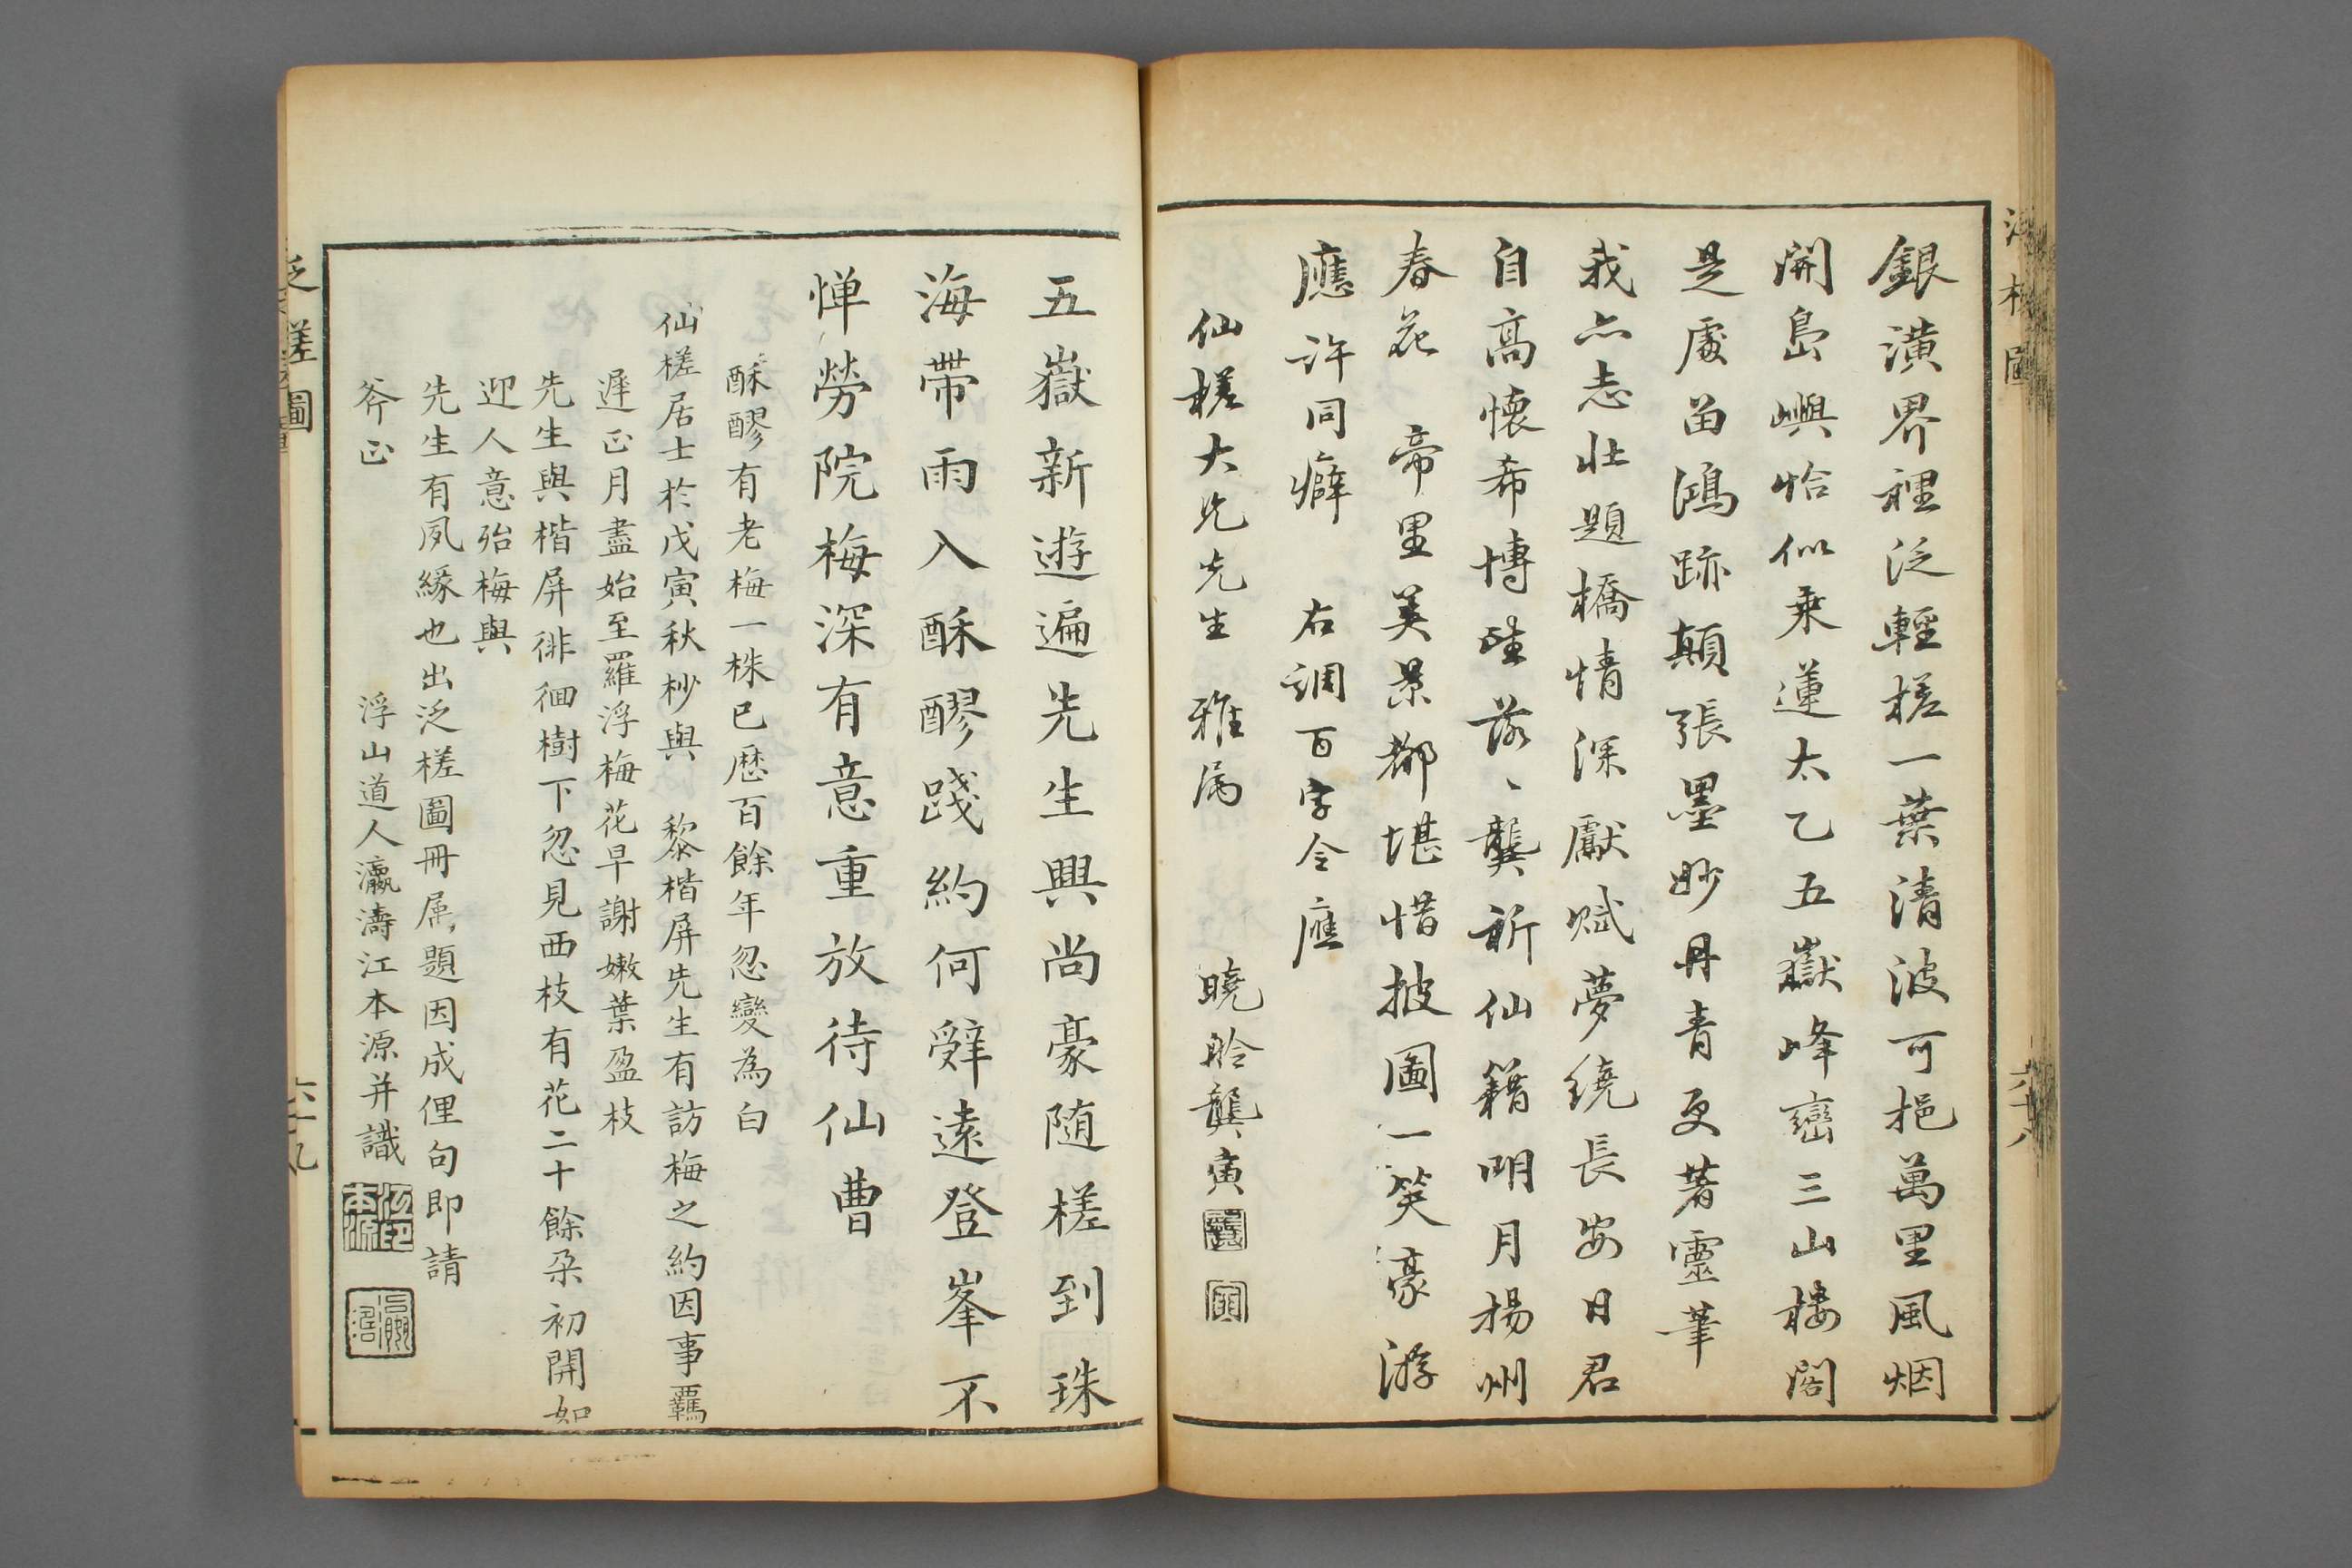 銀潢界裡泛輕槎一葉清波可挹萬里風烟
開島嶼恰似乘蓮太乙五嶽峰巒三山樓閣
是處留鴻跡顛張墨妙丹青更著靈筆
我亦志壯題橋情深獻賦夢繞長安日君
自高懷希博望落〻龔祈仙籍明月揚州
春花 帝里美景都堪惜披圖一笑豪游
應許同癖 右調百字令應
仙槎大兄先生 雅屬
曉聆龔寅
六十八
五嶽新遊遍先生興尚豪随槎到珠
海帶雨入酥醪踐約何辭遠登峯不
惮勞院梅深有意重放待仙曹
酥醪有老梅一株已歷百餘年忽變為白
仙槎居士於戊寅秋杪與 黎楷屏先生有訪梅之約因事羈
遲正月盡始至羅浮梅花早謝嫩葉盈枝
先生與楷屏徘徊樹下忽見西枝有花二十餘朶初開如
迎人意殆梅與
先生有夙緣也出泛槎圖冊屬題因成俚句即請
斧正 浮山道人瀛濤江本源并識
江印本源
泛槎圖
六十九